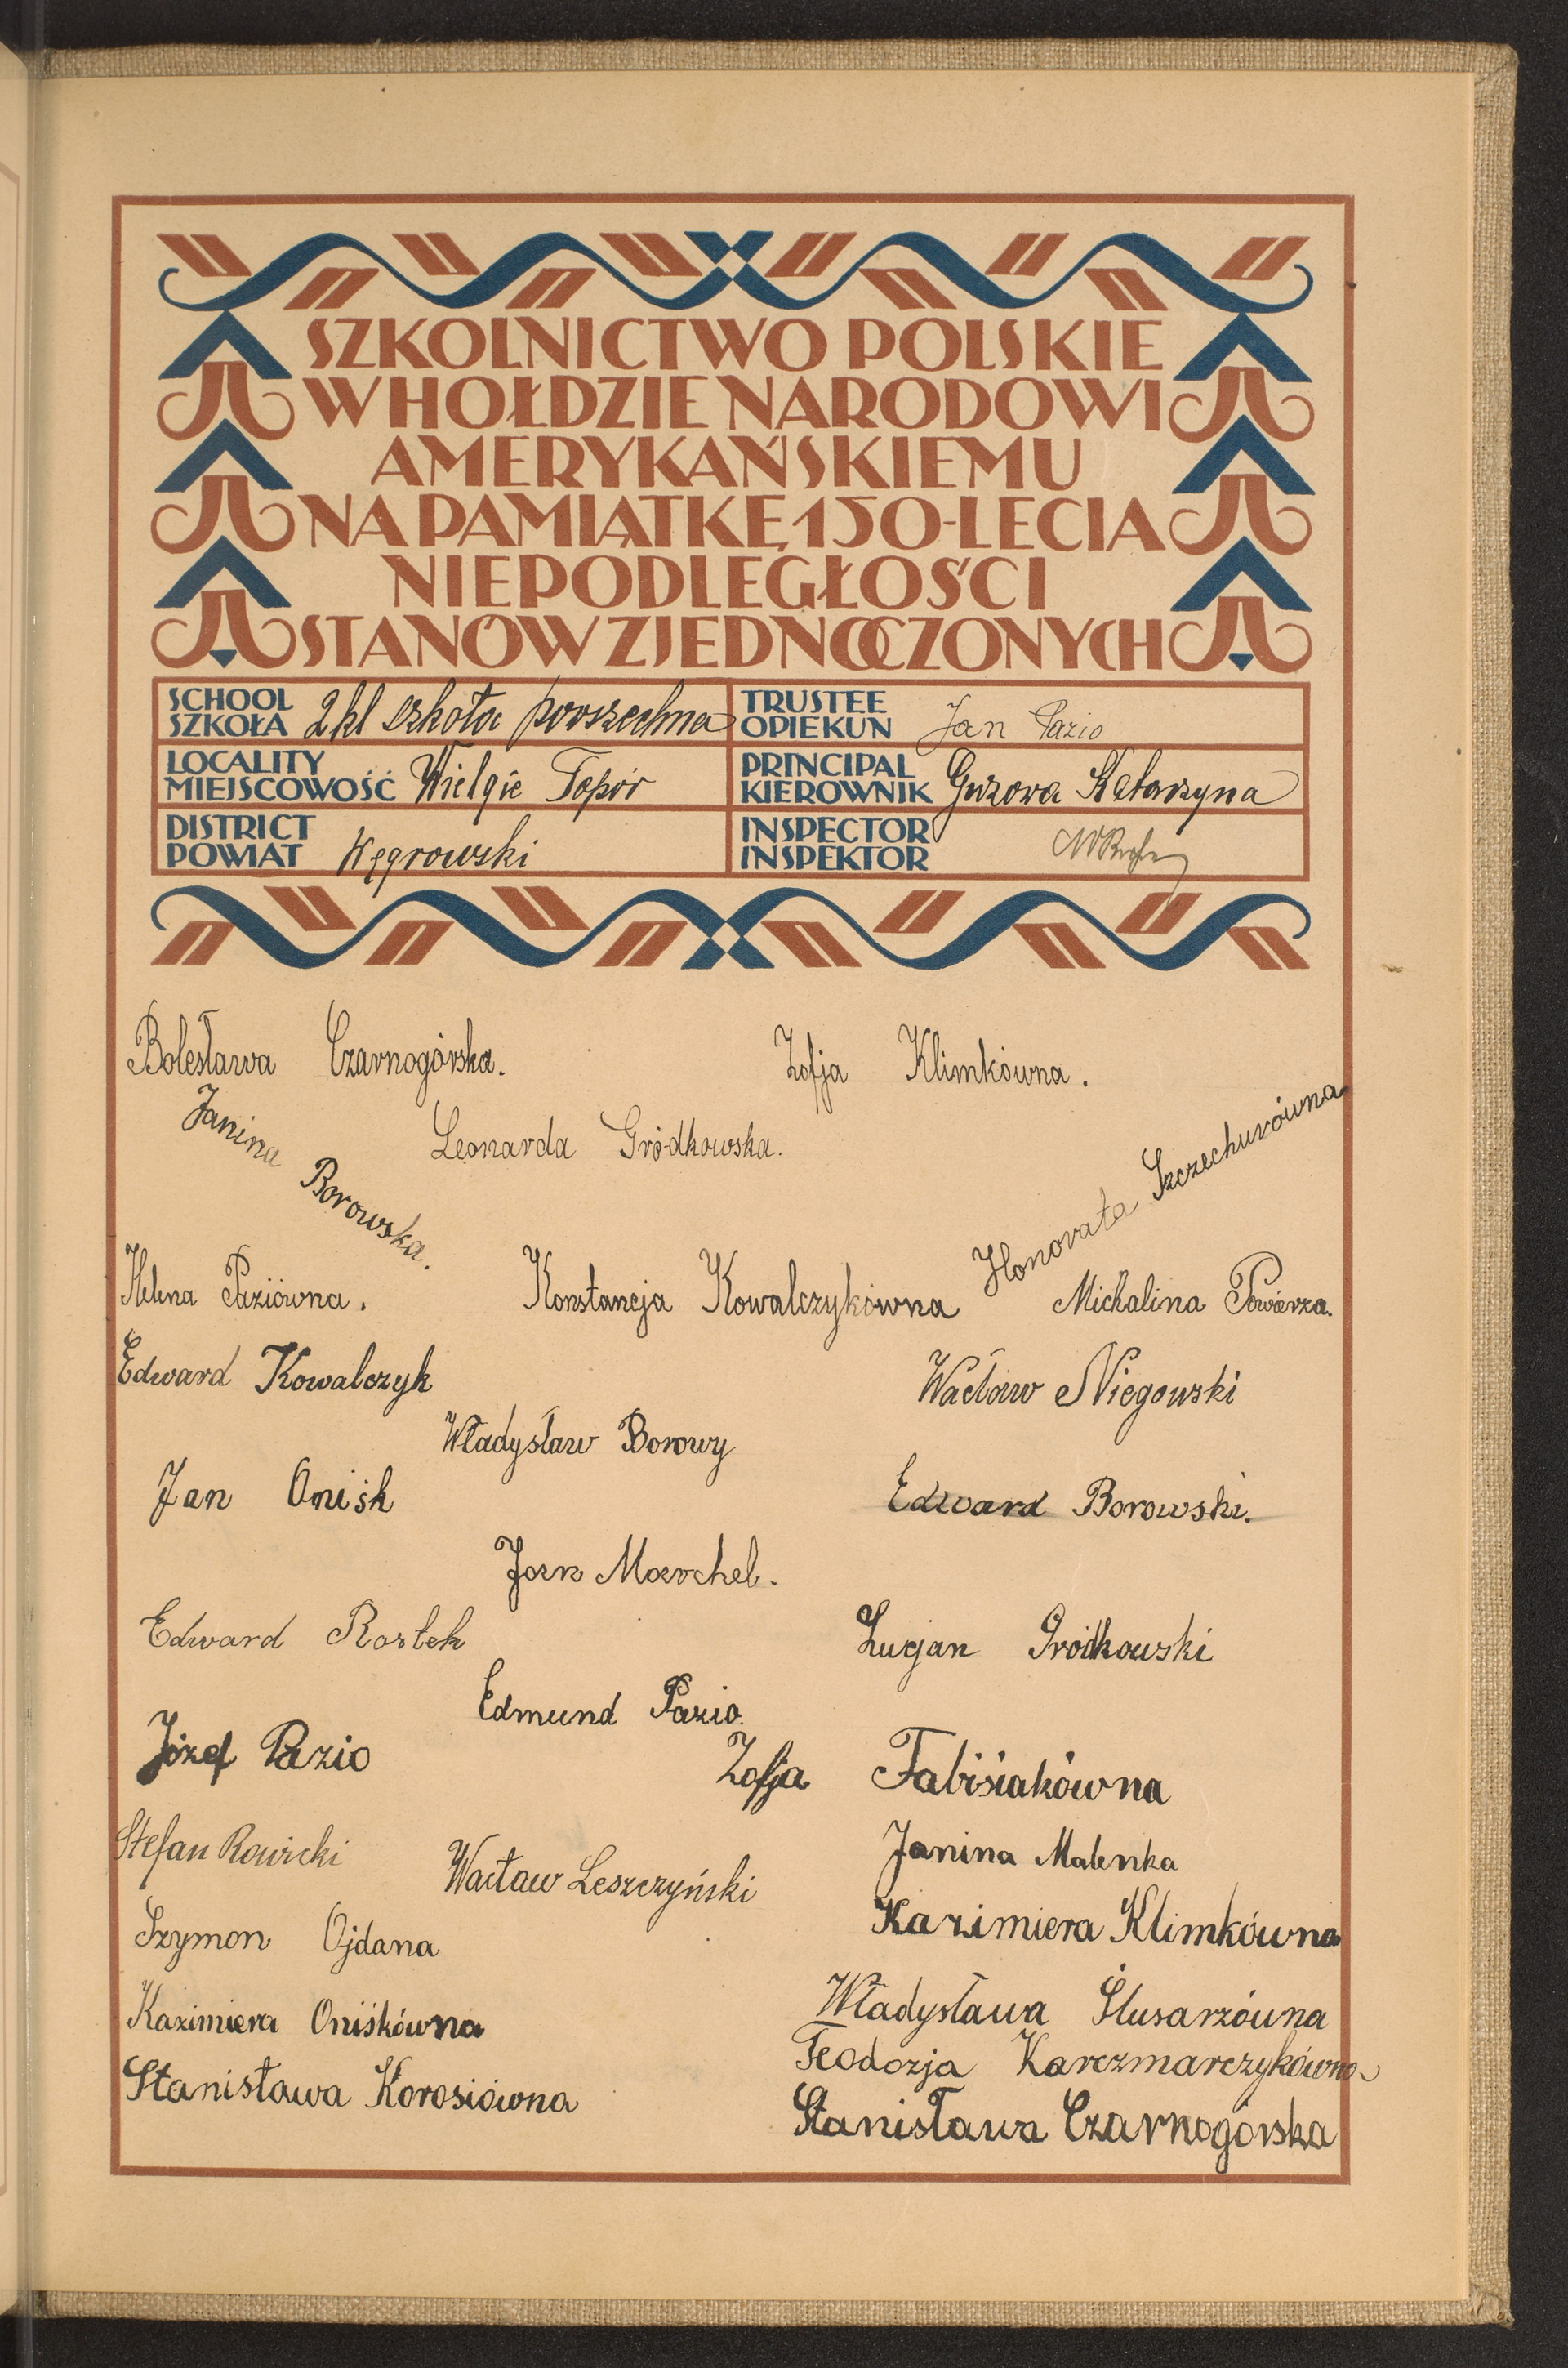 SZKOLNICTWO POLSKIE
W HOŁDZIE NARODOWI
AMERYKAŃSKIEMU
NA PAMIĄTKĘ 150-LECIA
NIEPODLEGŁOŚCI
STANÓW ZJEDNOCZONYCH
SCHOOL
SZKOŁA 2 kl szkoła powszechna
TRUSTEE
OPIEKUN Jan Pazio
LOCALITY
MIEJSCOWOŚĆ Wielgie Topór
PRINCIPAL
KIEROWNIK Guzowa Katarzyna
DISTRICT
POWIAT Węgrowski
INSPECTOR
INSPEKTOR
Bolesława Czarnogórska.
Zofja Klimkówna.
Janina Borowska.
Leonarda Gródkowska.
Honorata Szczechurówna
Helena Paziówna.
Konstancja Kowalczykówna
Michalina Powierza.
Edward Kowalczyk
Wacław Niegowski
Władysław Borowy
Jan Oniśk
Edward Borowski.
Jan Marchel.
Edward Rostek
Lucjan Gródkowski
Edmund Pazio
Józef Pazio
Zofja Fabisiakówna
Stefan Rowicki
Janina Malenka
Wacław Leszczyński
Kazimiera Klimkówna
Szymon Ojdana
Kazimiera Oniśkówna
Władysława Ślusarzówna
Teodozja Karczmarczykówna
Stanisława Korosiówna
Stanisława Czarnogórska